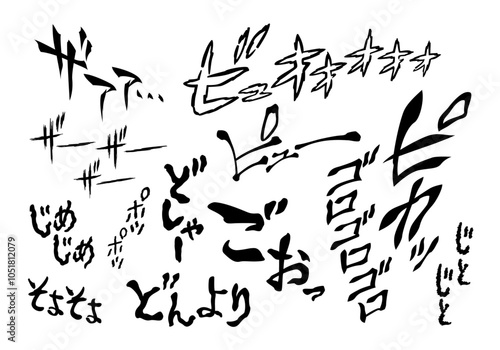 ザァァ…
ビュオオオオオ
ザー
ザー
ザー
ピュー
ピカッ
ゴロゴロゴロ
どしゃー
ごおっ
ポッ
ポッ
じめ
じめ
じと
じと
そよそよ
どんより
Adobe Stock | #1051812079